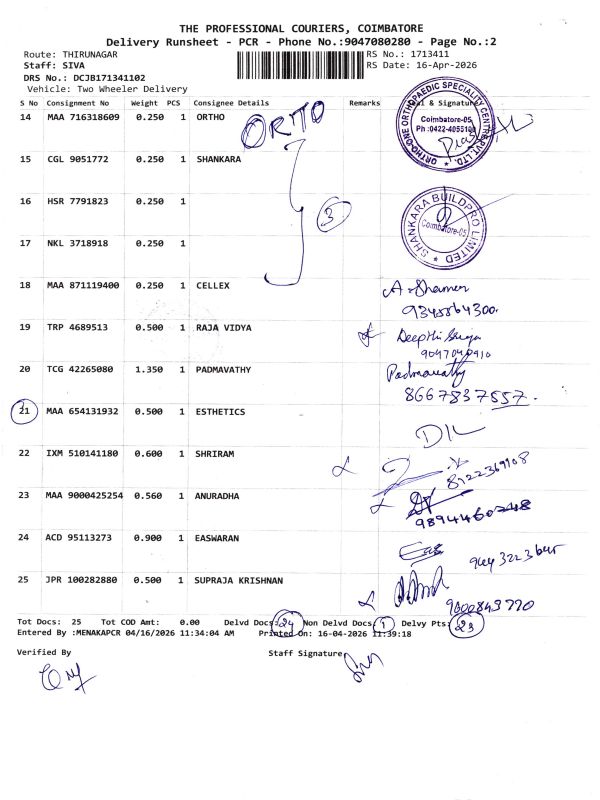 THE PROFESSIONAL COURIERS, COIMBATORE
Delivery Runsheet - PCR - Phone No.:9047080280 - Page No.:2
Route: THIRUNAGAR RS No.: 1713411
Staff: SIVA RS Date: 16-Apr-2026
DRS No.: DCJB171341102
Vehicle: Two Wheeler Delivery
S No Consignment No Weight PCS Consignee Details Remarks & Signature
14 MAA 716318609 0.250 1 ORTHO ORTO
ORTHO-ONE ORTHOPAEDIC SPECIALITY CENTRE PVT. LTD.
Coimbatore-05
15 CGL 9051772 0.250 1 SHANKARA
16 HSR 7791823 0.250 1 3
SHANKARA BUILDPRO LIMITED
Coimbatore-05
17 NKL 3718918 0.250 1
18 MAA 871119400 0.250 1 CELLEX
19 TRP 4689513 0.500 1 RAJA VIDYA
20 TCG 42265080 1.350 1 PADMAVATHY Padmavathy
8667837557.
21 MAA 654131932 0.500 1 ESTHETICS
22 IXM 510141180 0.600 1 SHRIRAM
23 MAA 9000425254 0.560 1 ANURADHA
24 ACD 95113273 0.900 1 EASWARAN
25 JPR 100282880 0.500 1 SUPRAJA KRISHNAN
Tot Docs: 25 Tot COD Amt: 0.00 Delvd Docs: 24 Non Delvd Docs: 1 Delvy Pts: 23
Entered By :MENAKAPCR 04/16/2026 11:34:04 AM Printed On: 16-04-2026 11:39:18
Verified By Staff Signature